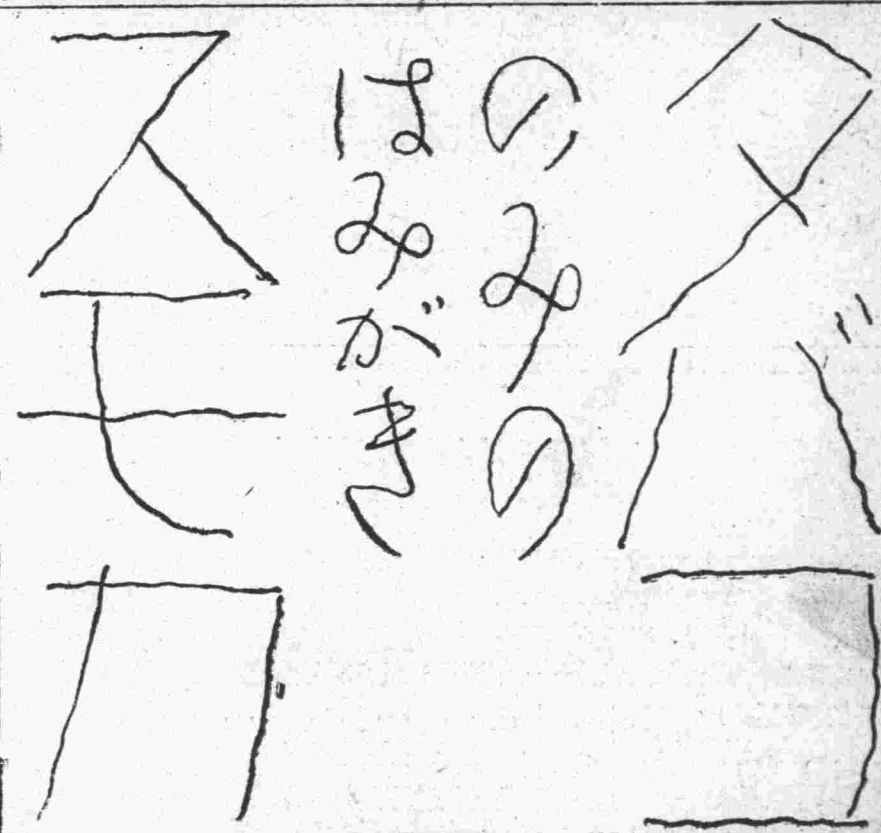 タバコ
のみの
はみがき
スモカ